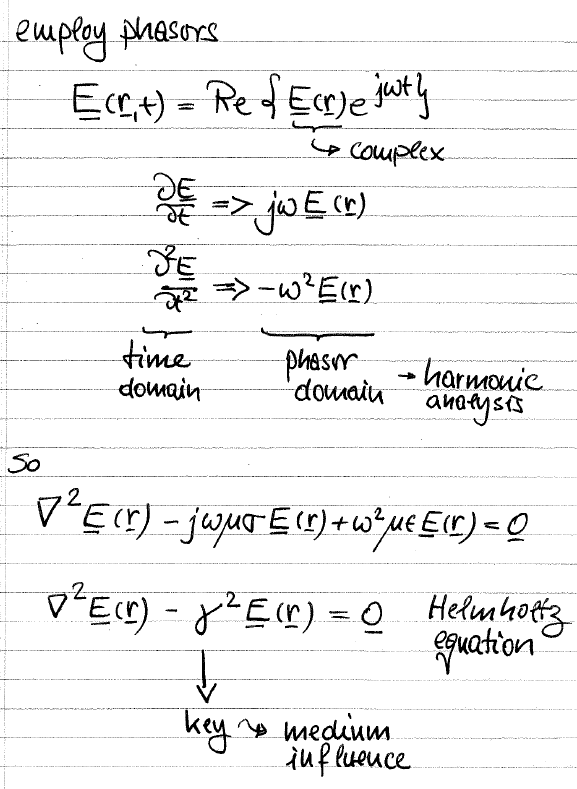 employ phasors
E̲(r̲,t) = Re { E̲(r̲) e^{jωt} }
↳ complex
∂E̲/∂t => jω E̲(r̲)
∂²E̲/∂t² => -ω² E̲(r̲)
time domain
phasor domain → harmonic analysis
So
∇²E̲(r̲) - jωμσ E̲(r̲) + ω²με E̲(r̲) = 0̲
∇²E̲(r̲) - γ² E̲(r̲) = 0̲ Helmholtz equation
↓
key ↝ medium influence